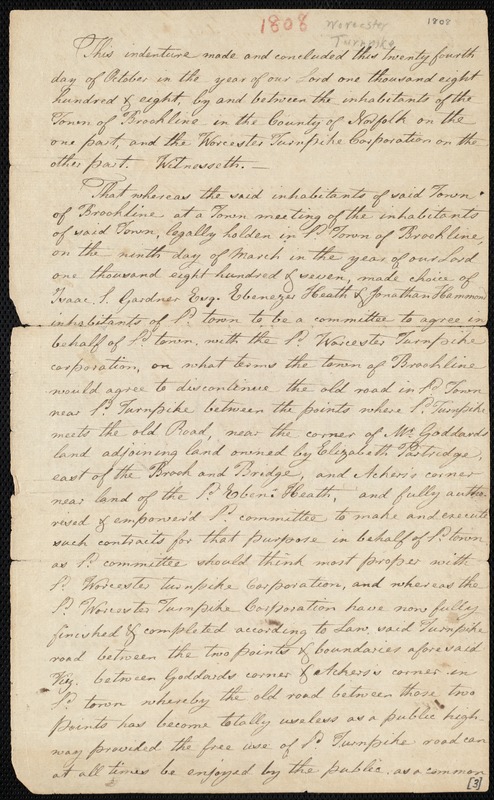 1808 Worcester Turnpike 1808
This indenture made and concluded this twenty fourth
day of October in the year of our Lord one thousand eight
hundred & eight, by and between the inhabitants of the
Town of Brookline in the County of Norfolk on the
one part, and the Worcester Turnpike Corporation on the
other part. Witnesseth. —
That whereas the said inhabitants of said Town
of Brookline at a Town meeting of the inhabitants
of said Town, legally holden in sd. Town of Brookline,
on the ninth day of March in the year of our Lord
one thousand eight hundred & seven, made choice of
Isaac. S. Gardner Esq. Ebenezer Heath & Jonathan Hammond
inhabitants of sd. town to be a committee to agree in
behalf of sd. town, with the sd. Worcester Turnpike
corporation, on what terms the town of Brookline
would agree to discontinue the old road in sd. Town
near sd. Turnpike between the points where sd. Turnpike
meets the old Road, near the corner of Mr. Goddards
land adjoining land owned by Elizabeth Partridge,
east of the Brook and Bridge, and Ackers's corner
near land of the sd. Eben. Heath, and fully autho-
rised & empower'd sd. committee to make and execute
such contracts for that purpose in behalf of sd. town
as sd. committee should think most proper with
sd. Worcester turnpike Corporation, and whereas the
sd. Worcester Turnpike Corporation have now fully
finished & completed according to Law said Turnpike
road between the two points & boundaries aforesaid
Viz. between Goddards corner & Ackers's corner in
sd. town whereby the old road between those two
points has become totally useless as a public high
way provided the free use of sd. Turnpike road can
at all times be enjoyed by the public, as a common
[3]